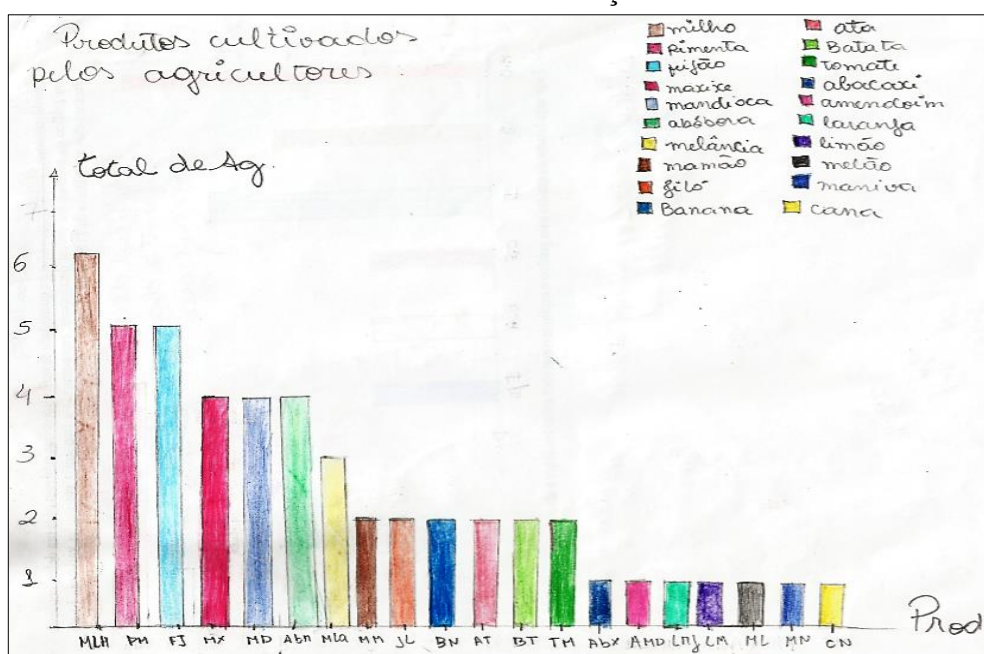 Produtos cultivados
pelos agricultores
total de Ag.
milho
Pimenta
feijão
maxixe
mandioca
abóbora
melância
mamão
giló
Banana
ata
Batata
tomate
abacaxi
amendoim
laranja
limão
melão
maniva
cana
7
6
5
4
3
2
1
MLH PM FJ MX MD Abn Mla MM JL BN AT BT TM Abx AMD LRJ LM ML MN CN
Prod